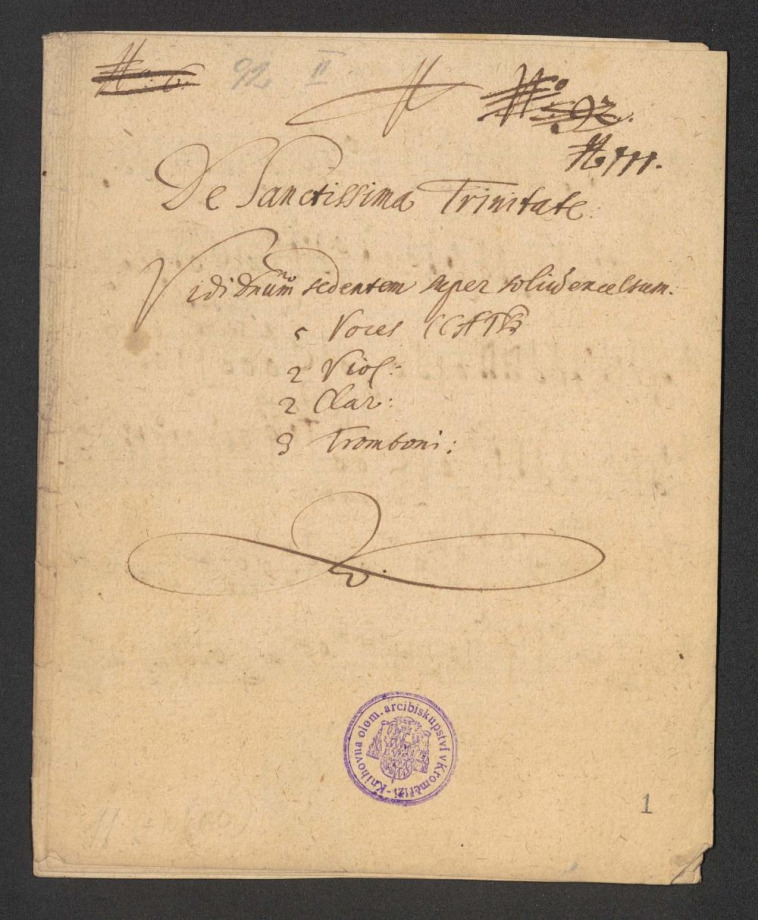 92 II
N
No 592.
De Sanctissima Trinitate
Vidi Dnum sedentem super soliu excelsum.
5 Voces CCATB
2 Viol:
2 Clar:
3 Tromboni:
Knihovna olom. arcibiskupství v Kroměříži
1